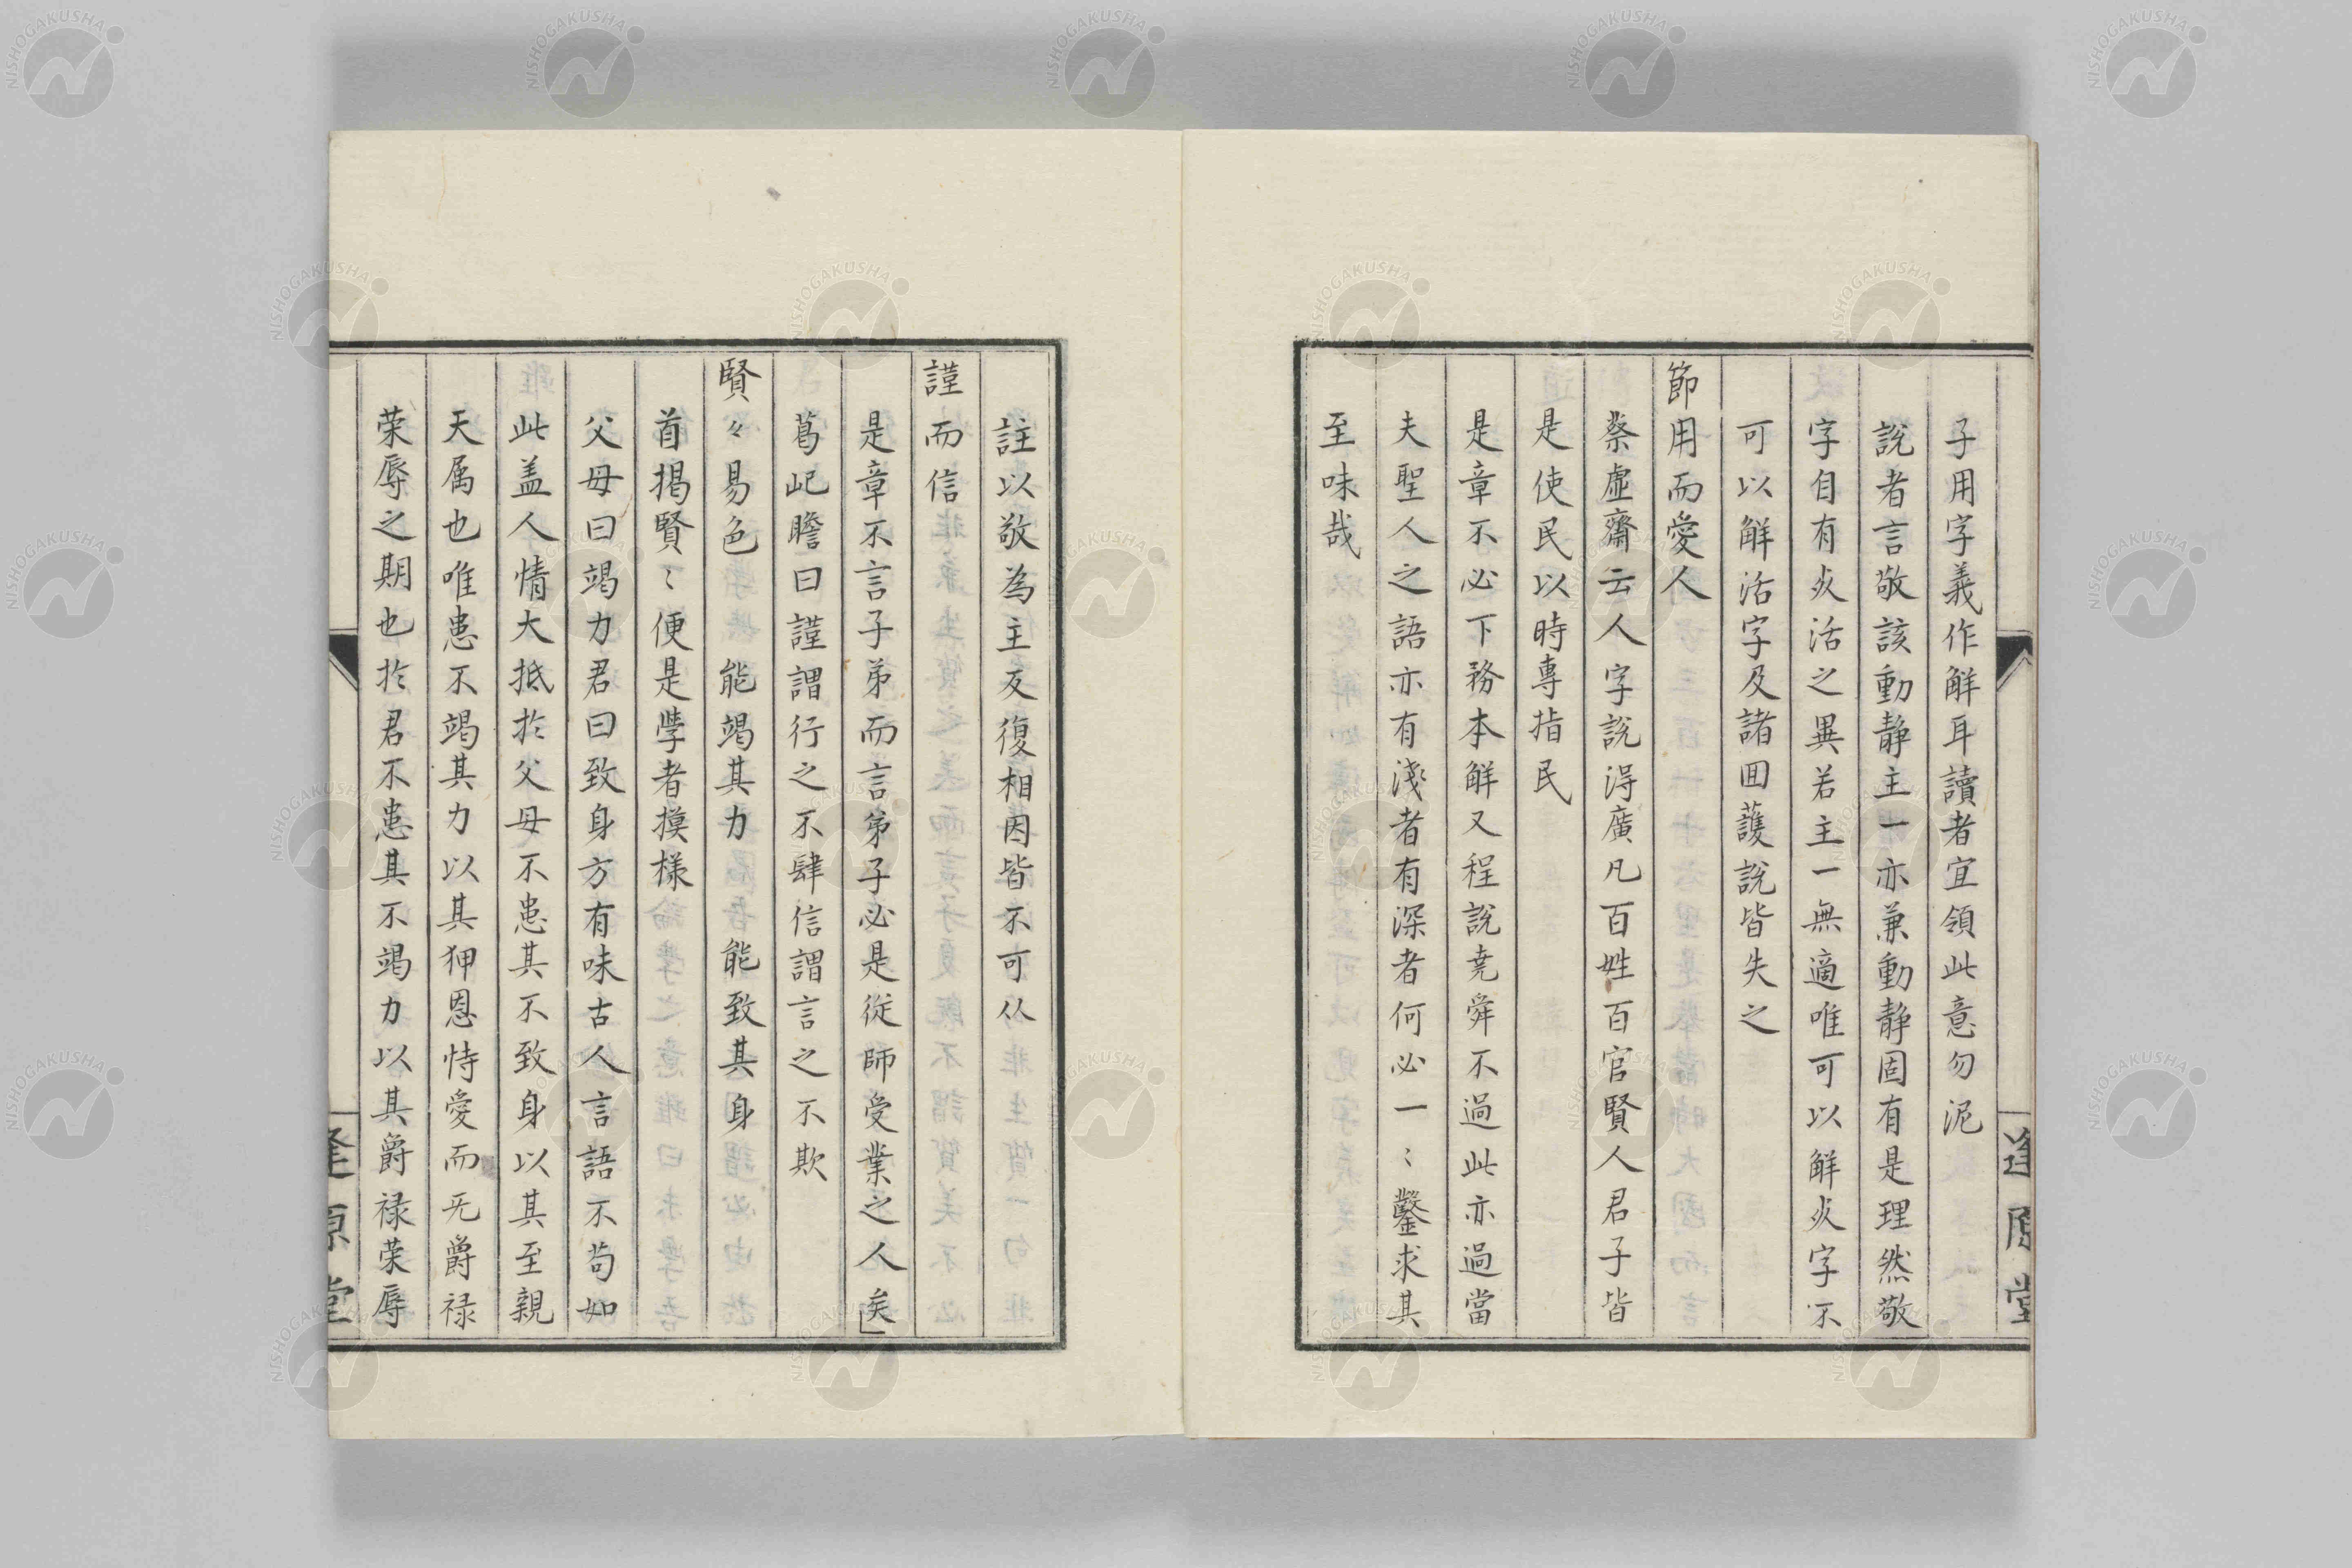 子用字義作解耳讀者宜領此意勿泥
說者言敬該動静主一亦兼動静固有是理然敬
字自有死活之異若主一無適唯可以解死字不
可以解活字及諸囬護說皆失之
節用而愛人
蔡虛齋云人字說得廣凡百姓百官賢人君子皆
是使民以時專指民
是章不必下務本解又程說尭舜不過此亦過當
夫聖人之語亦有淺者有深者何必一〻鑿求其
至味哉
逢原堂
註以敬為主反復相因皆不可从
謹而信
是章不言子弟而言弟子必是從師受業之人矣」
葛屺瞻曰謹謂行之不肆信謂言之不欺
賢々易色 能竭其力 能致其身
首揭賢〻便是學者摸樣
父母曰竭力君曰致身方有味古人言語不苟如
此盖人情大抵於父母不患其不致身以其至親
天属也唯患不竭其力以其狎恩恃愛而无爵禄
荣辱之期也於君不患其不竭力以其爵禄荣辱
逢原堂